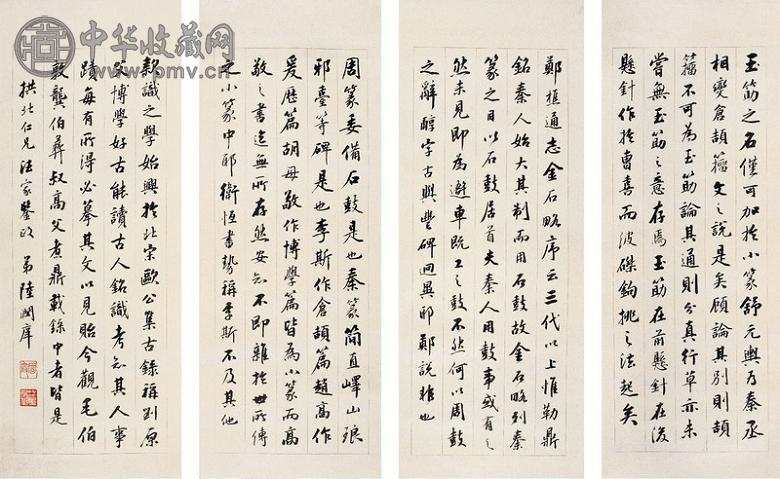 玉筯之名僅可加於小篆舒元輿為秦丞
相變倉頡籀文之說是矣顧論其別則頡
籀不可為玉筯論其通則分真行草亦未
嘗無玉筯之意存焉玉筯在前懸針在後
懸針作於曹喜而波磔鉤挑之法起矣
鄭樵通志金石略序云三代以上惟勒鼎
銘秦人始大其制而用石鼓故金石略列秦
篆之目以石鼓居首夫秦人用鼓事或有之
然未見即為避車既工之鼓不然何以周鼓
之辭醇字古與豐碑迥異耶鄭說非也
周篆委備石鼓是也秦篆簡直嶧山琅
邪臺等碑是也李斯作倉頡篇趙高作
爰歷篇胡母敬作博學篇皆為小篆而高
敬之書迄無所存然安知不即雜於世所傳
之小篆中耶衛恆書勢稱李斯不及其他
款識之學始興於北宋歐公集古錄稱劉原
父博學好古能讀古人銘識考知其人事
蹟每有所得必摹其文以見貽今觀毛伯
敦龔伯彝叔高父煮鼎載錄中者皆是
拱北仁兄法家鑒政 弟陸潤庠
中华收藏网
www.pmv.cn